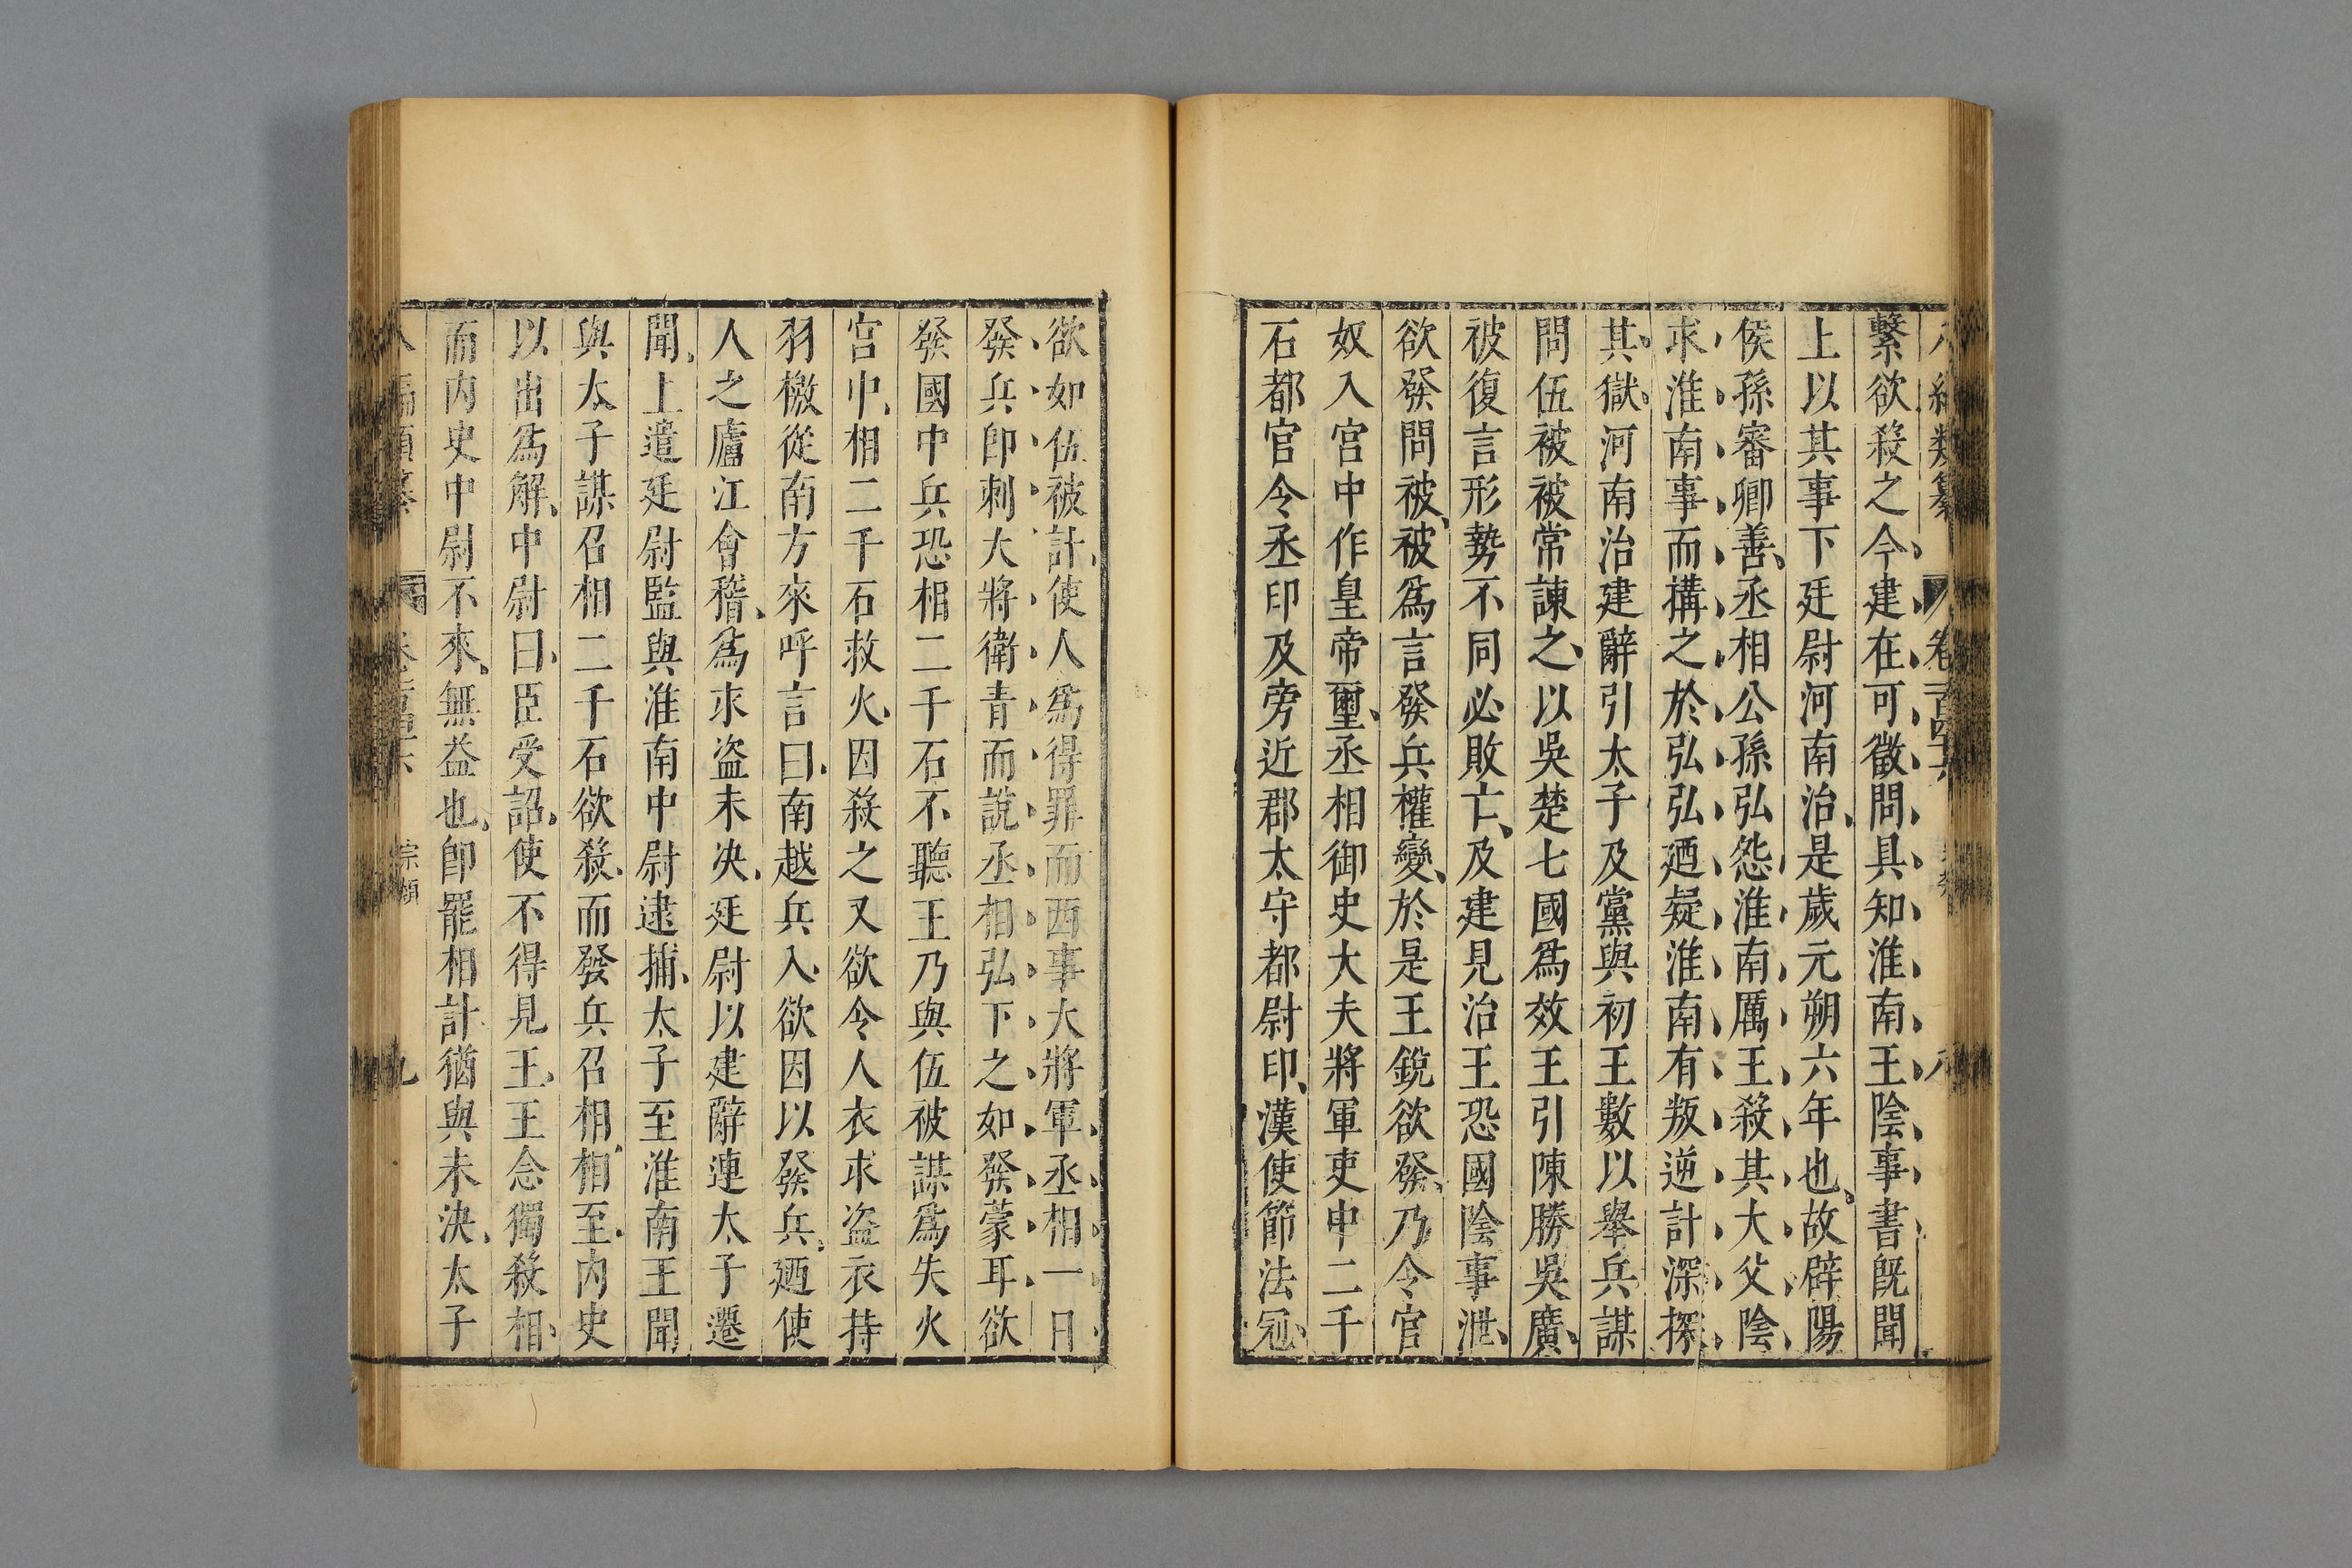 編類纂 卷一百四十六 八
繫欲殺之今建在可徵問具知淮南王陰事書旣聞
上以其事下廷尉河南治是歲元朔六年也故辟陽
侯孫審卿善丞相公孫弘怨淮南厲王殺其大父陰
求淮南事而構之於弘弘廼疑淮南有叛逆計深探
其獄河南治建辭引太子及黨與初王數以舉兵謀
問伍被被常諫之以吳楚七國爲效王引陳勝吳廣
被復言形勢不同必敗亡及建見治王恐國陰事泄
欲發問被被爲言發兵權變於是王銳欲發乃令官
奴入宮中作皇帝璽丞相御史大夫將軍吏中二千
石都官令丞印及旁近郡太守都尉印漢使節法冠
欲如伍被計使人爲得罪而西事大將軍丞相一日
發兵卽刺大將衛青而說丞相弘下之如發蒙耳欲
發國中兵恐相二千石不聽王乃與伍被謀爲失火
宮中相二千石救火因殺之又欲令人衣求盜衣持
羽檄從南方來呼言曰南越兵入欲因以發兵廼使
人之廬江會稽爲求盜未決廷尉以建辭連太子遷
聞上遣廷尉監與淮南中尉逮捕太子至淮南王聞
與太子謀召相二千石欲殺而發兵召相相至內史
以出爲解中尉曰臣受詔使不得見王王念獨殺相
而內史中尉不來無益也卽罷相計猶與未決太子
編類纂 卷一百四十六 宗類 九